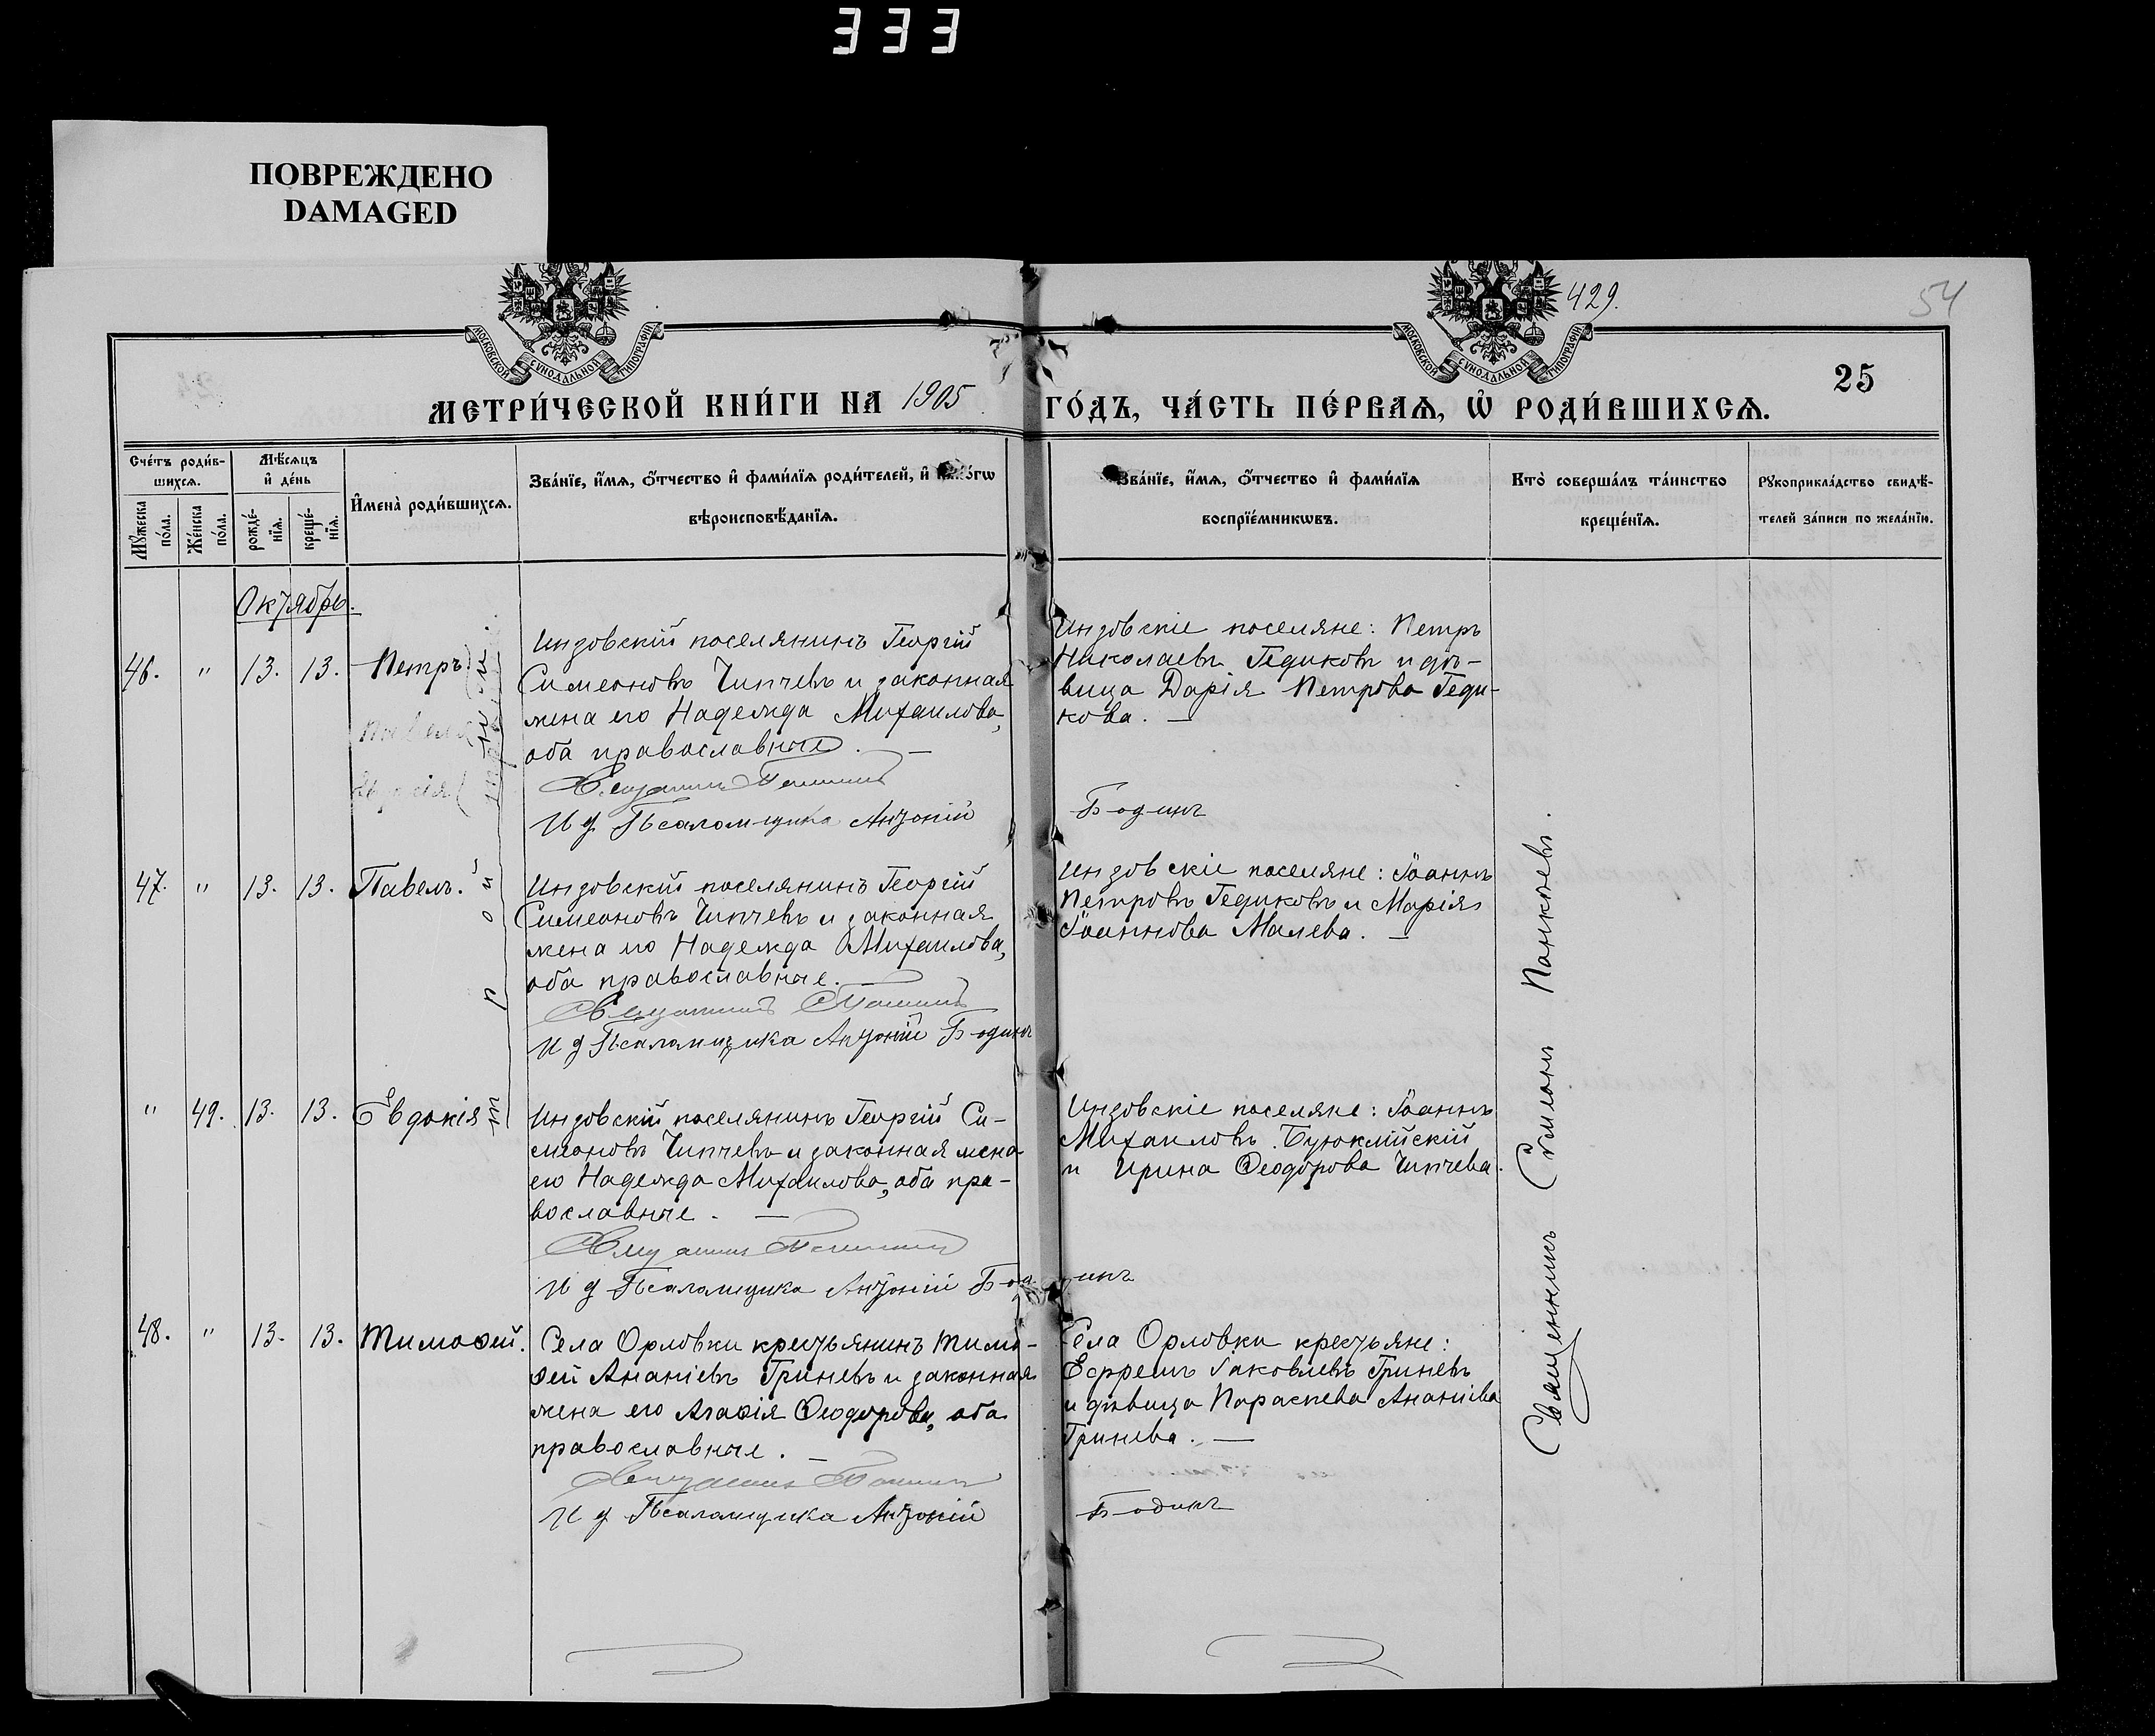 333
ПОВРЕЖДЕНО
DAMAGED
МОСКОВСКОЙ СѴНОДАЛЬНОЙ ТИПОГРАФІИ
МОСКОВСКОЙ СѴНОДАЛЬНОЙ ТИПОГРАФІИ
429.
54
25
МЕТРИ́ЧЕСКОЙ КНИ́ГИ НА 1905 ГО́ДЪ, ЧА́СТЬ ПЕ́РВАѦ, Ѡ҆ РОДИ́ВШИХСѦ.
Сче́тъ роди́в-
шихсѧ.
Мѣ́сѧцъ
и҆ де́нь
Мꙋ́жеска
по́ла.
Же́нска
по́ла.
рожде́-
нїѧ.
креще́-
нїѧ.
И҆мена̀ роди́вшихсѧ.
Зва́нїе, и҆́мѧ, ѻ҆́тчество и҆ фами́лїѧ роди́телей, и҆
вѣроисповѣ́данїѧ.
Зва́нїе, и҆́мѧ, ѻ҆́тчество и҆ фами́лїѧ
воспрїе́мникѡвъ.
Кто̀ соверша́лъ та́инство
креще́нїѧ.
Рꙋкоприкла́дство свидѣ́-
телей за́писи по жела́нїю.
Октябрь.
46. " 13. 13. Петръ
Индовскій поселянинъ Георгій
Симеоновъ Чипчевъ и законная
жена его Надежда Михаилова,
оба православные. —
И д Псаломщика Антоній Бодинъ
Индовскіе поселяне: Петръ
Николаевъ Гедиковъ и дѣ-
вица Дарія Петрова Геди-
кова. —
47. " 13. 13. Павелъ.
Индовскій поселянинъ Георгій
Симеоновъ Чипчевъ и законная
жена его Надежда Михаилова,
оба православные. —
И д Псаломщика Антоній Бодинъ
Индовскіе поселяне: Іоаннъ
Петровъ Гедиковъ и Марія
Іоаннова Малева. —
" 49. 13. 13. Евдокія
Индовскій поселянинъ Георгій Си-
меоновъ Чипчевъ и законная жена
его Надежда Михаилова, оба пра-
вославные. —
И д Псаломщика Антоній Бодинъ
Индовскіе поселяне: Іоаннъ
Михаиловъ Буюклійскій
и Ирина Ѳеодорова Чипчева.
48. " 13. 13. Тимоѳей.
Села Орловки крестьянинъ Тимо-
ѳей Ананіевъ Гриневъ и законная
жена его Агаѳія Ѳеодорова, оба
православные. —
И д Псаломщика Антоній Бодинъ
Села Орловки крестьяне:
Ефремъ Іаковлевъ Гриневъ
и дѣвица Параскева Ананіева
Гринева. —
Священникъ Сѵмеонъ